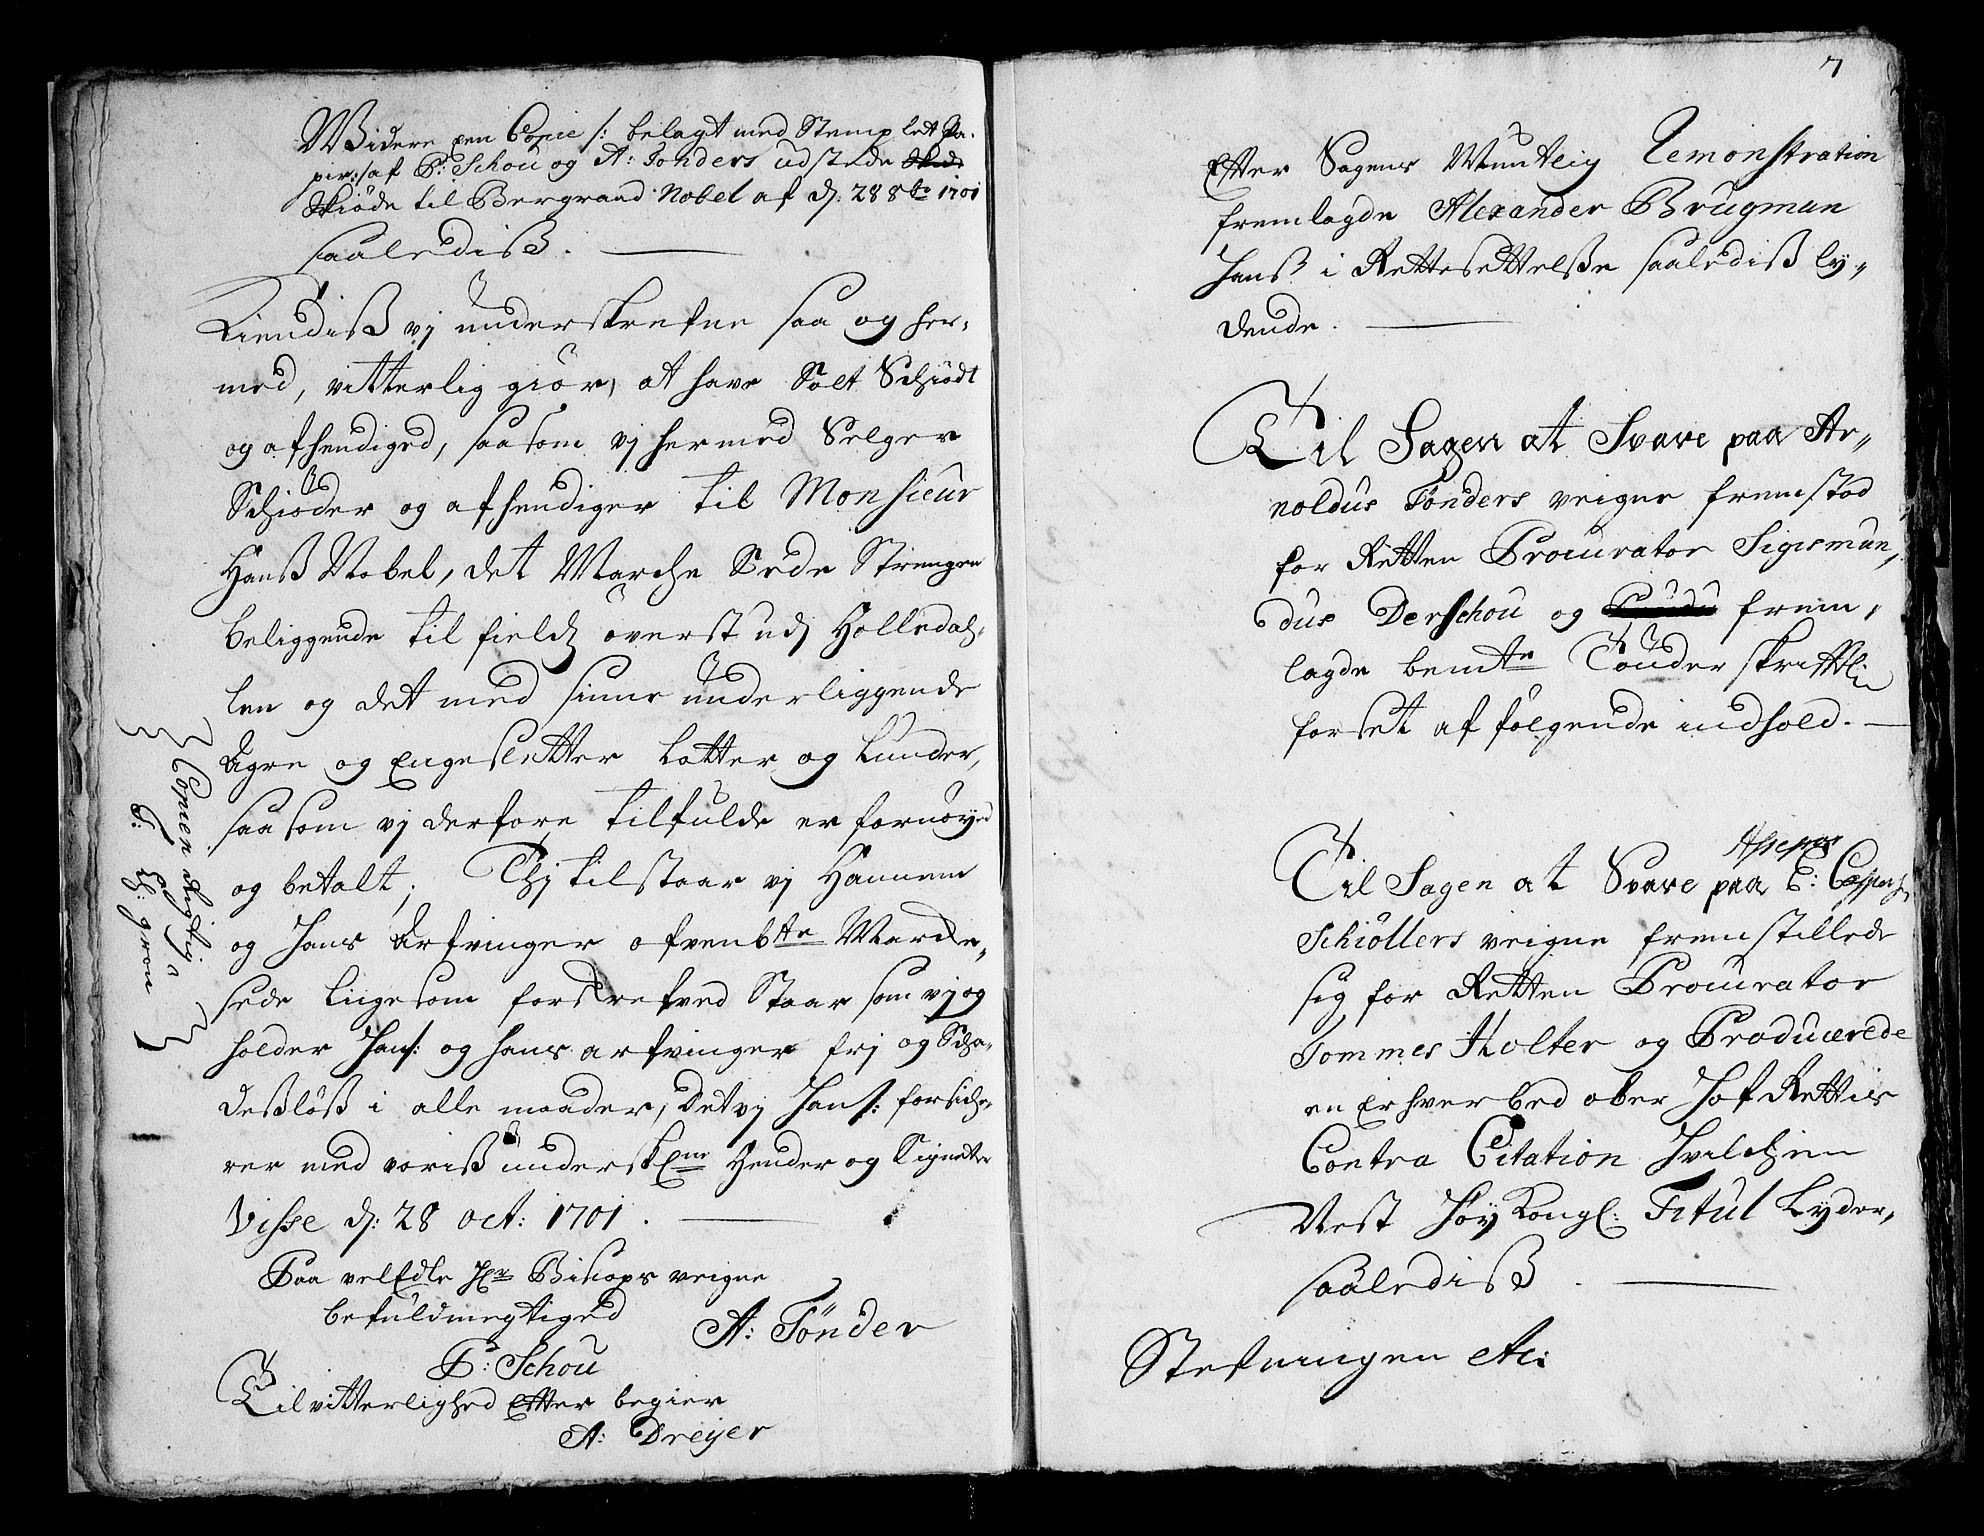 Widere een Copie /: belagt med Stemplet Pa-
pir :/ af P: Schou og A: Tønders udstede
Skiøde til Bergraad Nobel af d: 28 8br 1701
saalediß.
Kiendiß vj underskrefne saa og her-
med, vitterlig giør, at have Solt Schiødt
og afhendiged, saasom vj hermed Selger
Schiøder og afhendiger til Monsieur
Hanß Nobel, det Marche Sede Strengen
beliggende til field øverst udj Holledah-
len og det med sinne underliggende
Agre og Engesletter Lotter og Lunder,
saasom vj derfore tilfulde er fornøyed
og betalt; Thj tilstaar vj Hannem
og Hans Arfvinger ofvenbte Marcke-
sede Liigesom forskrefved Staar som vj og
holder Han/: og hans arfvinger frj og Scha-
deßløß i alle maader, Det vj Han/: forsiche-
rer med voriß underskne Hender og Signeter
Visse d: 28 oct: 1701.
Paa velEdle Hr Biskops veigne
befuldmegtiged
A: Tønder
P: Schou
Til vitterlighed Efter begier
A: Dreyer
Copien Rigtig
T:
7
Efter Sagens Muntlig Remonstration
fremlagde Alexander Brugman
Hanß i Rettesettelße saalediß ly-
dende.
Til Sagen at Svare paa Ar-
noldus Tønders veigne fremstod
for Retten Procurator Sigismun-
dus Derschou og frem-
lagde bemte Tønder skriftl:
forset af følgende indhold.
Assessor
Til Sagen at Svare paa C:
Schiøllers veigne fremstillede
sig for Retten Procurator
Tommes Holter og Producerede
en Erhverbed ober Hof Rettiis
Contra Citation Hvilchen
Nest Høy Kongl: Titul Lyder,
saalediß.
Stefningen etc: